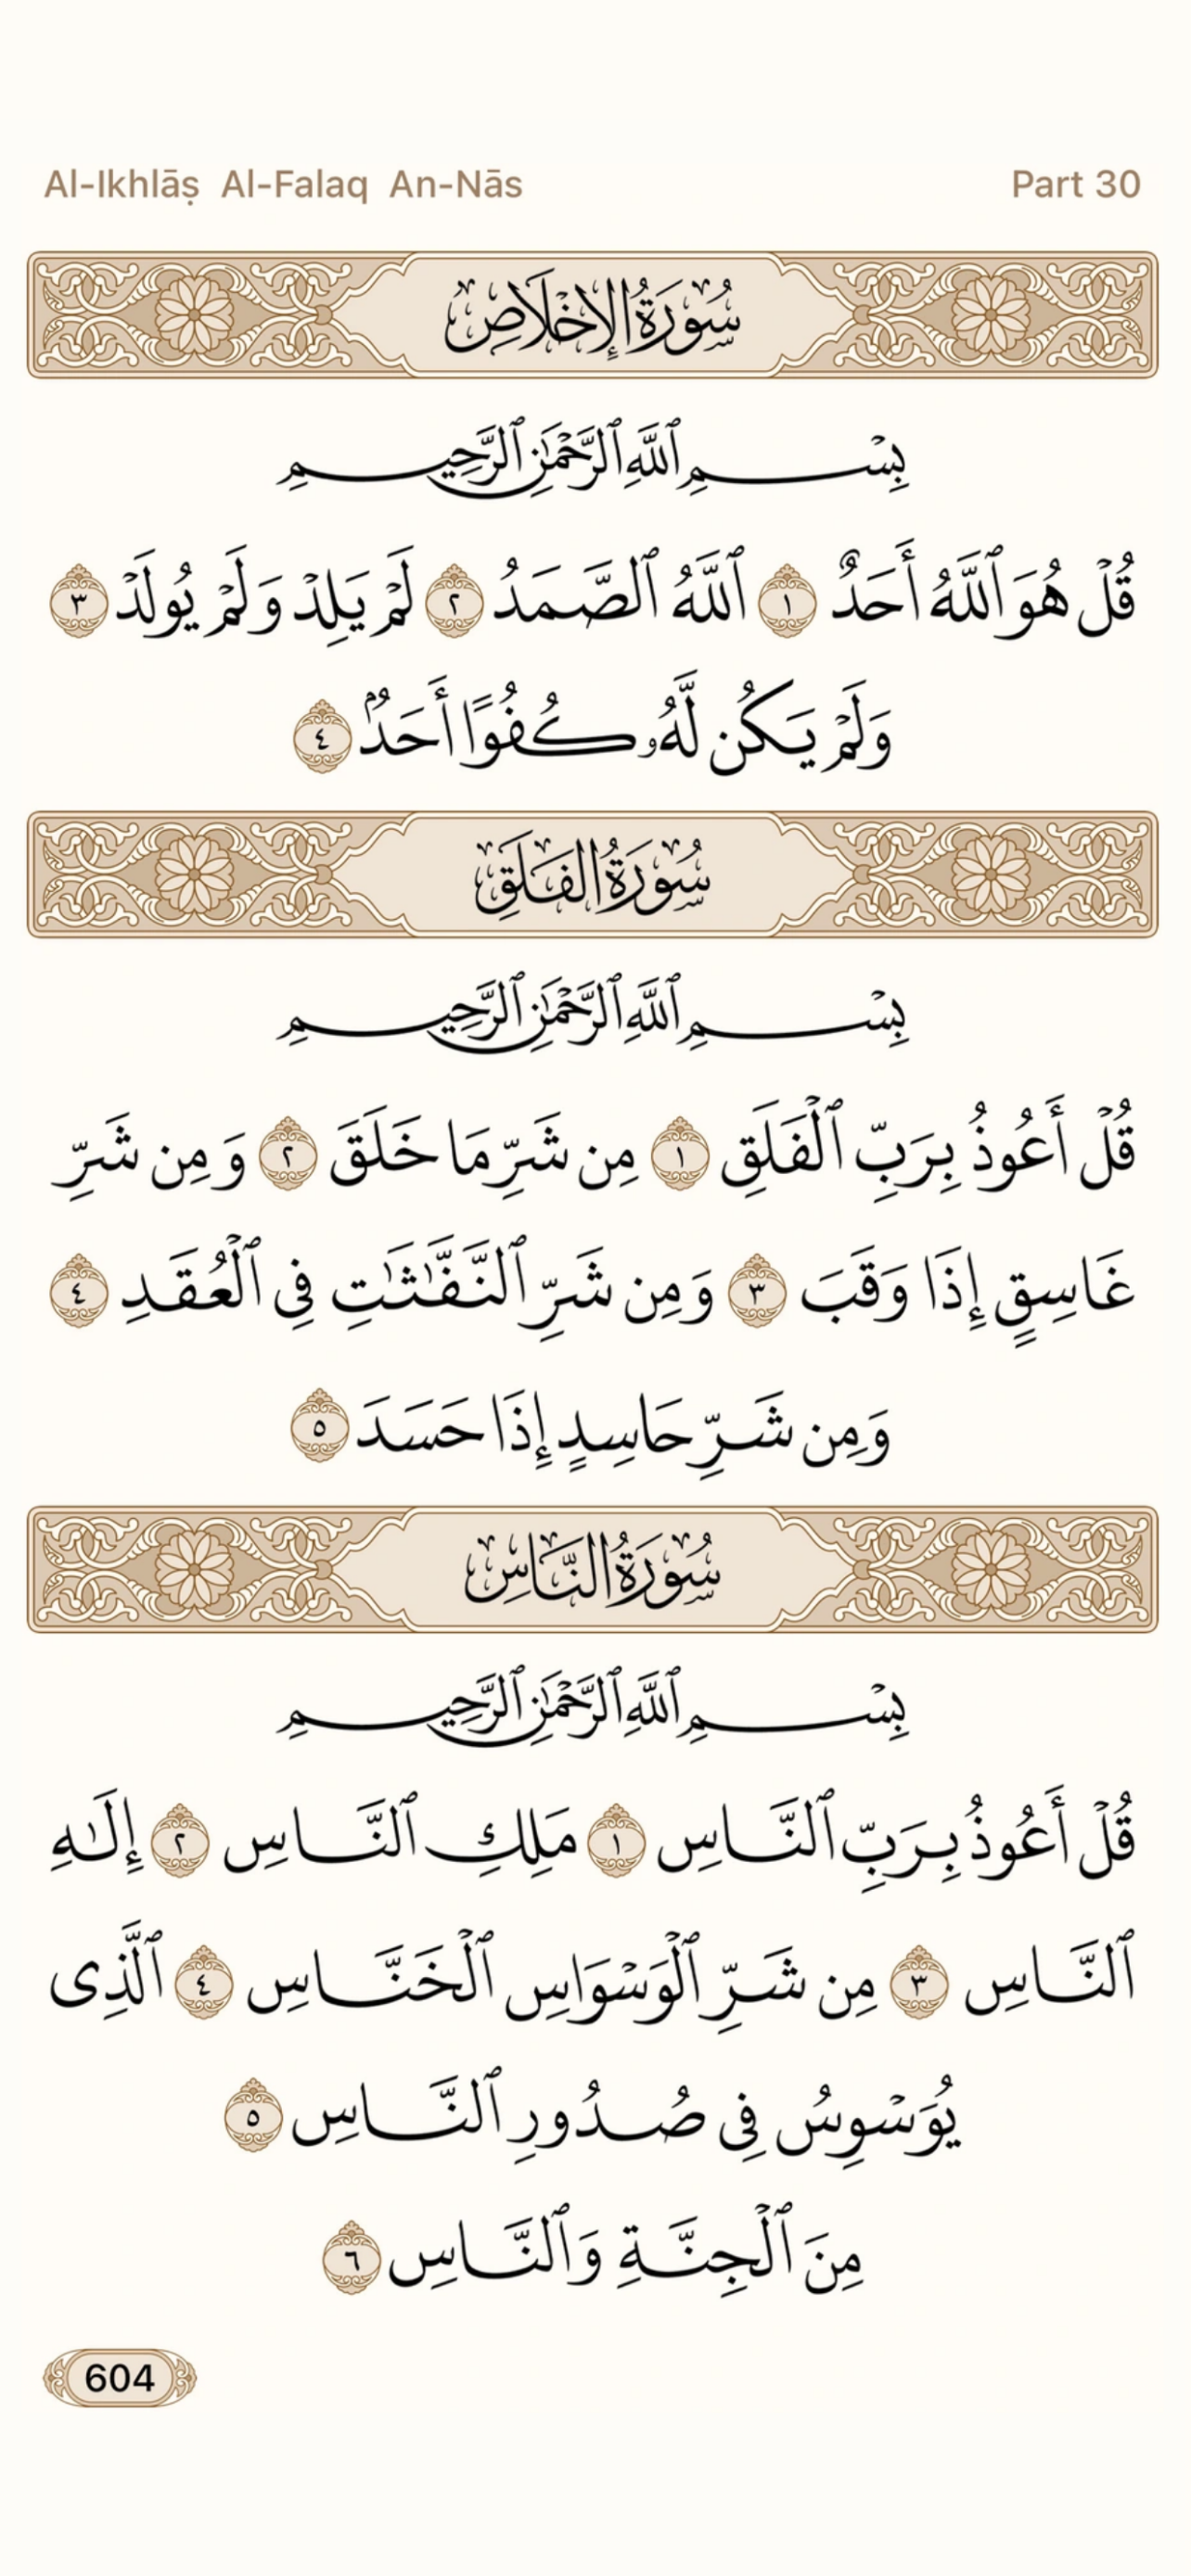 Al-Ikhlāṣ Al-Falaq An-Nās Part 30
سُورَةُ الإِخْلَاصِ
بِسْمِ ٱللَّهِ ٱلرَّحْمَٰنِ ٱلرَّحِيمِ
قُلْ هُوَ ٱللَّهُ أَحَدٌ ١ ٱللَّهُ ٱلصَّمَدُ ٢ لَمْ يَلِدْ وَلَمْ يُولَدْ ٣
وَلَمْ يَكُن لَّهُۥ كُفُوًا أَحَدٌۢ ٤
سُورَةُ الفَلَقِ
بِسْمِ ٱللَّهِ ٱلرَّحْمَٰنِ ٱلرَّحِيمِ
قُلْ أَعُوذُ بِرَبِّ ٱلْفَلَقِ ١ مِن شَرِّ مَا خَلَقَ ٢ وَمِن شَرِّ
غَاسِقٍ إِذَا وَقَبَ ٣ وَمِن شَرِّ ٱلنَّفَّٰثَٰتِ فِى ٱلْعُقَدِ ٤
وَمِن شَرِّ حَاسِدٍ إِذَا حَسَدَ ٥
سُورَةُ النَّاسِ
بِسْمِ ٱللَّهِ ٱلرَّحْمَٰنِ ٱلرَّحِيمِ
قُلْ أَعُوذُ بِرَبِّ ٱلنَّاسِ ١ مَلِكِ ٱلنَّاسِ ٢ إِلَٰهِ
ٱلنَّاسِ ٣ مِن شَرِّ ٱلْوَسْوَاسِ ٱلْخَنَّاسِ ٤ ٱلَّذِى
يُوَسْوِسُ فِى صُدُورِ ٱلنَّاسِ ٥
مِنَ ٱلْجِنَّةِ وَٱلنَّاسِ ٦
604